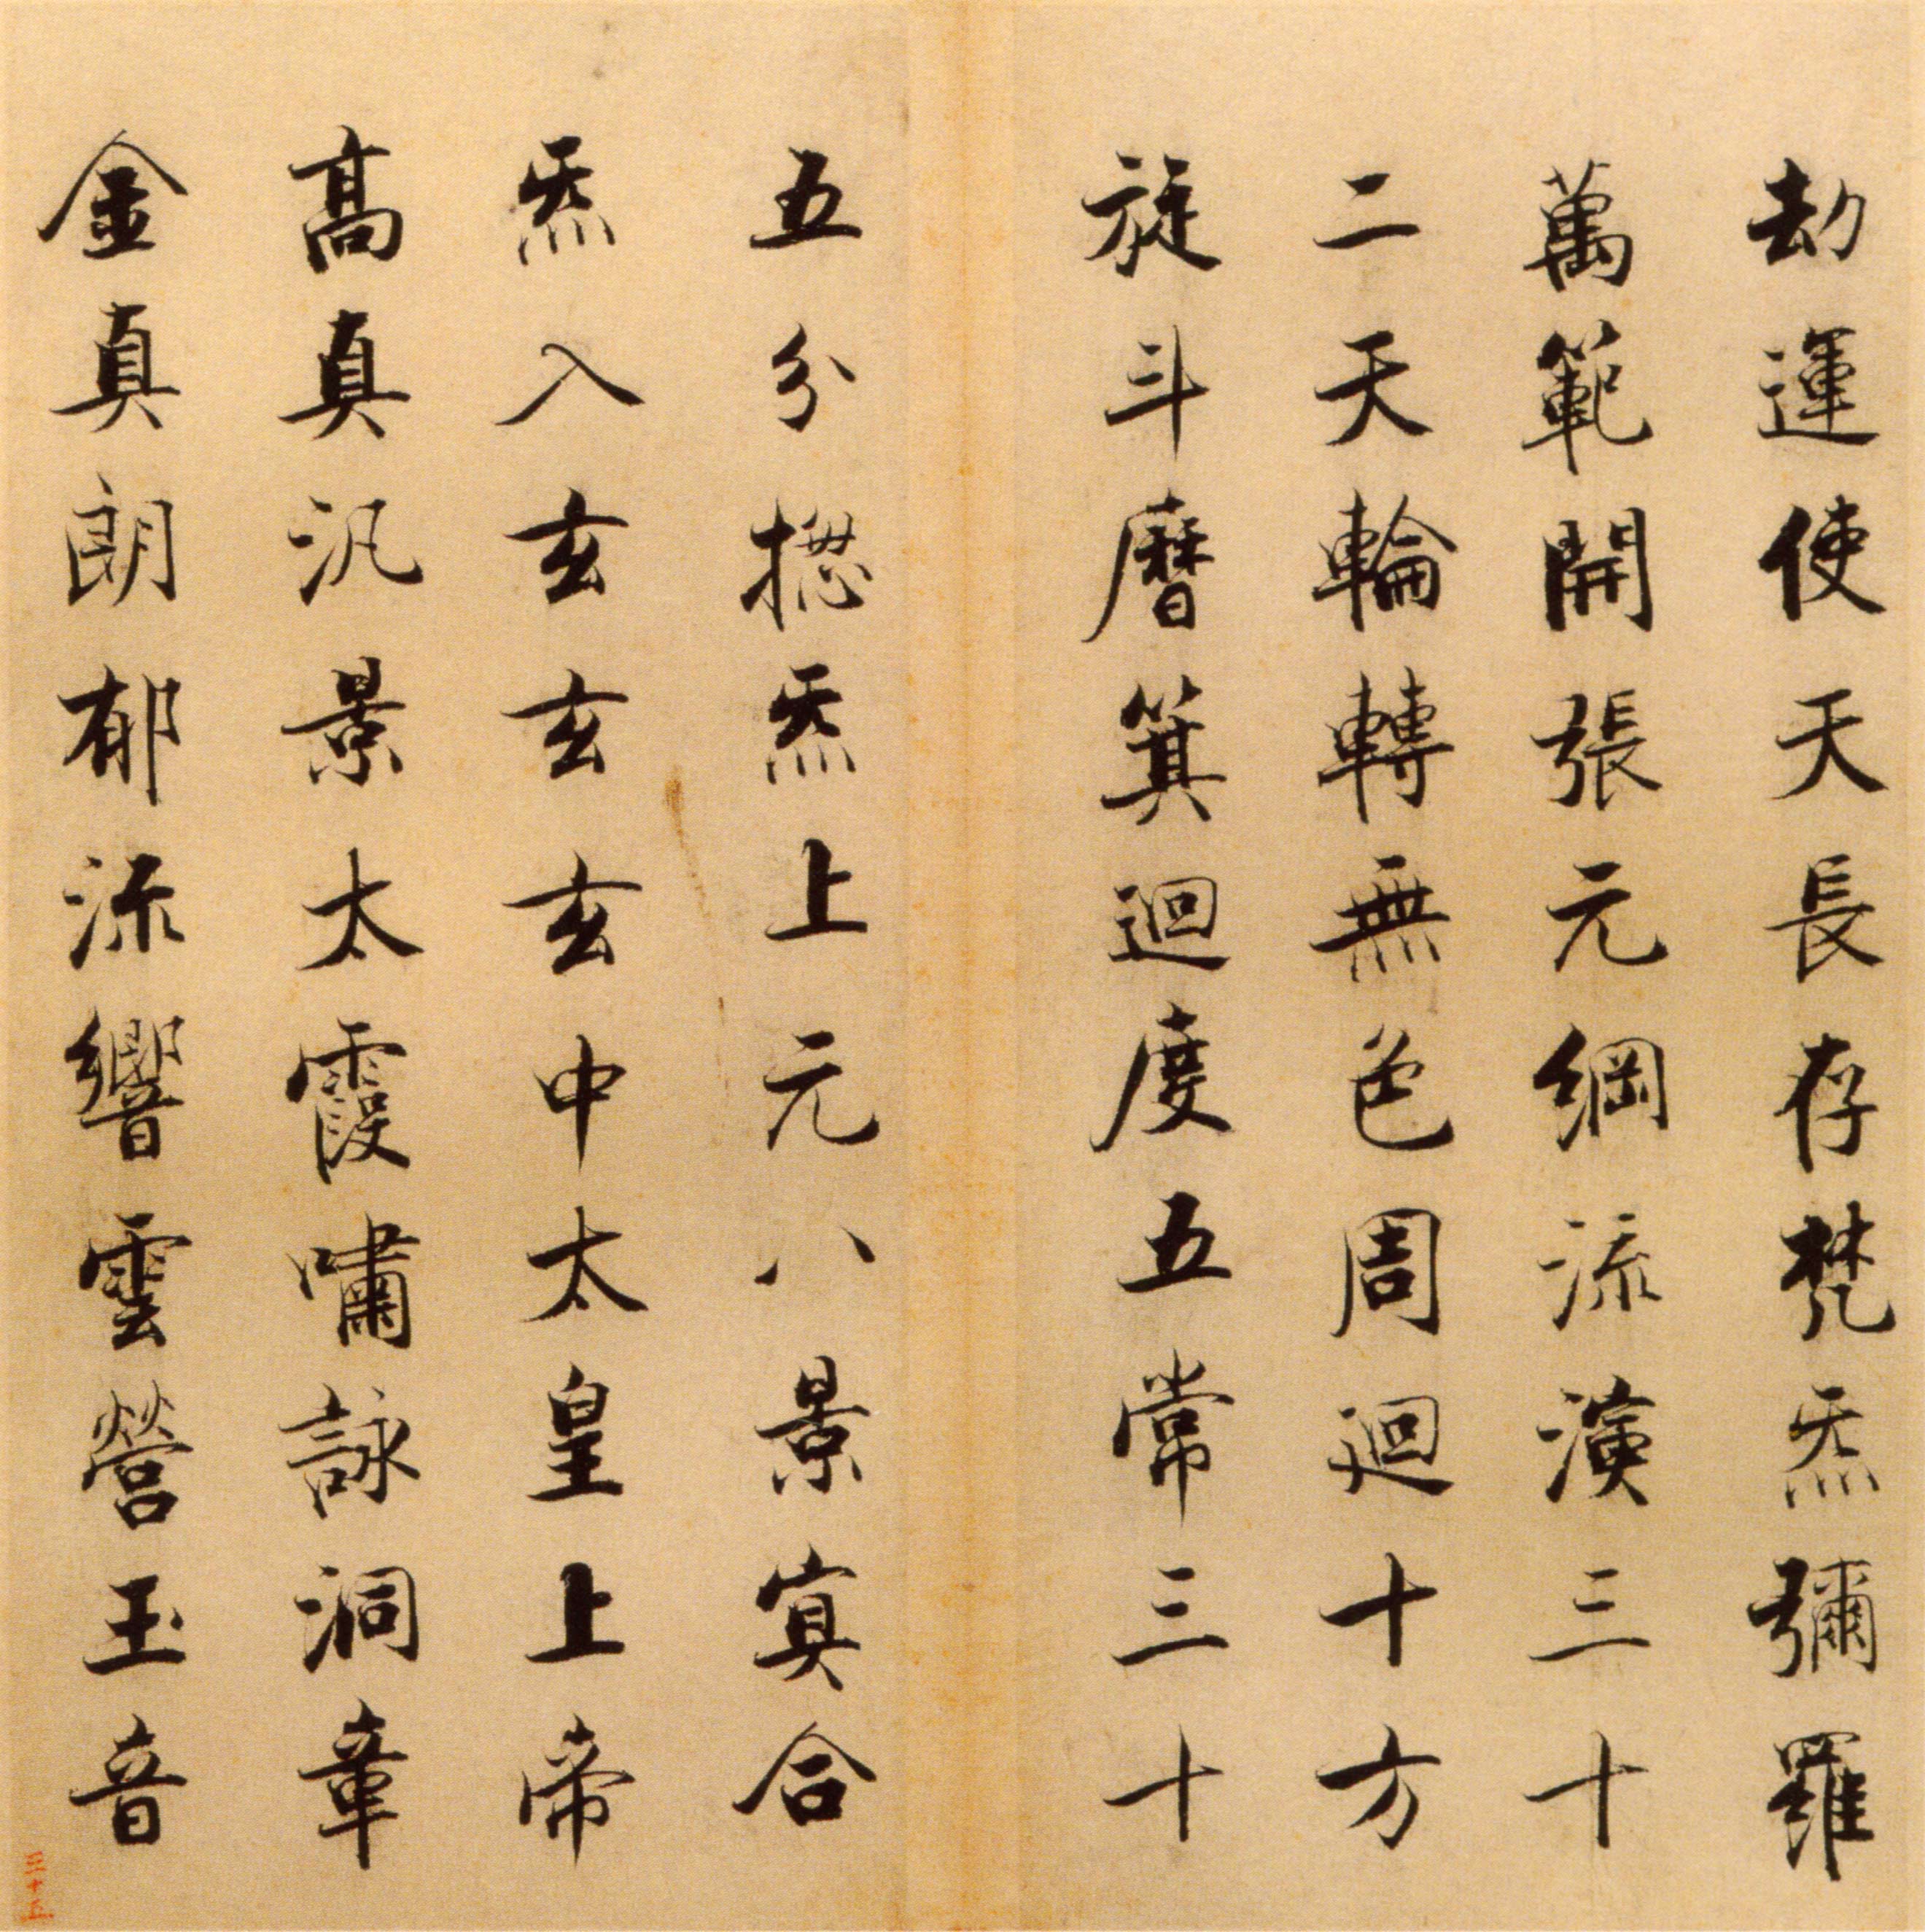 劫運使天長存梵炁彌羅
萬範開張元綱流演三十
二天輪轉無色周迴十方
旋斗曆箕迴度五常三十
五分揔炁上元八景㝠合
炁入玄玄玄中太皇上帝
髙真汎景太霞嘯詠洞章
金真朗郁流響雲營玉音
三十五